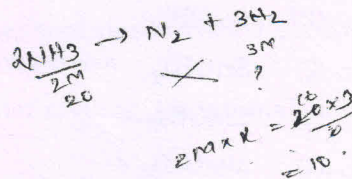 2NH3 → N2 + 3H2
2M 3M
20 ?
= 20 × 3
= 10.